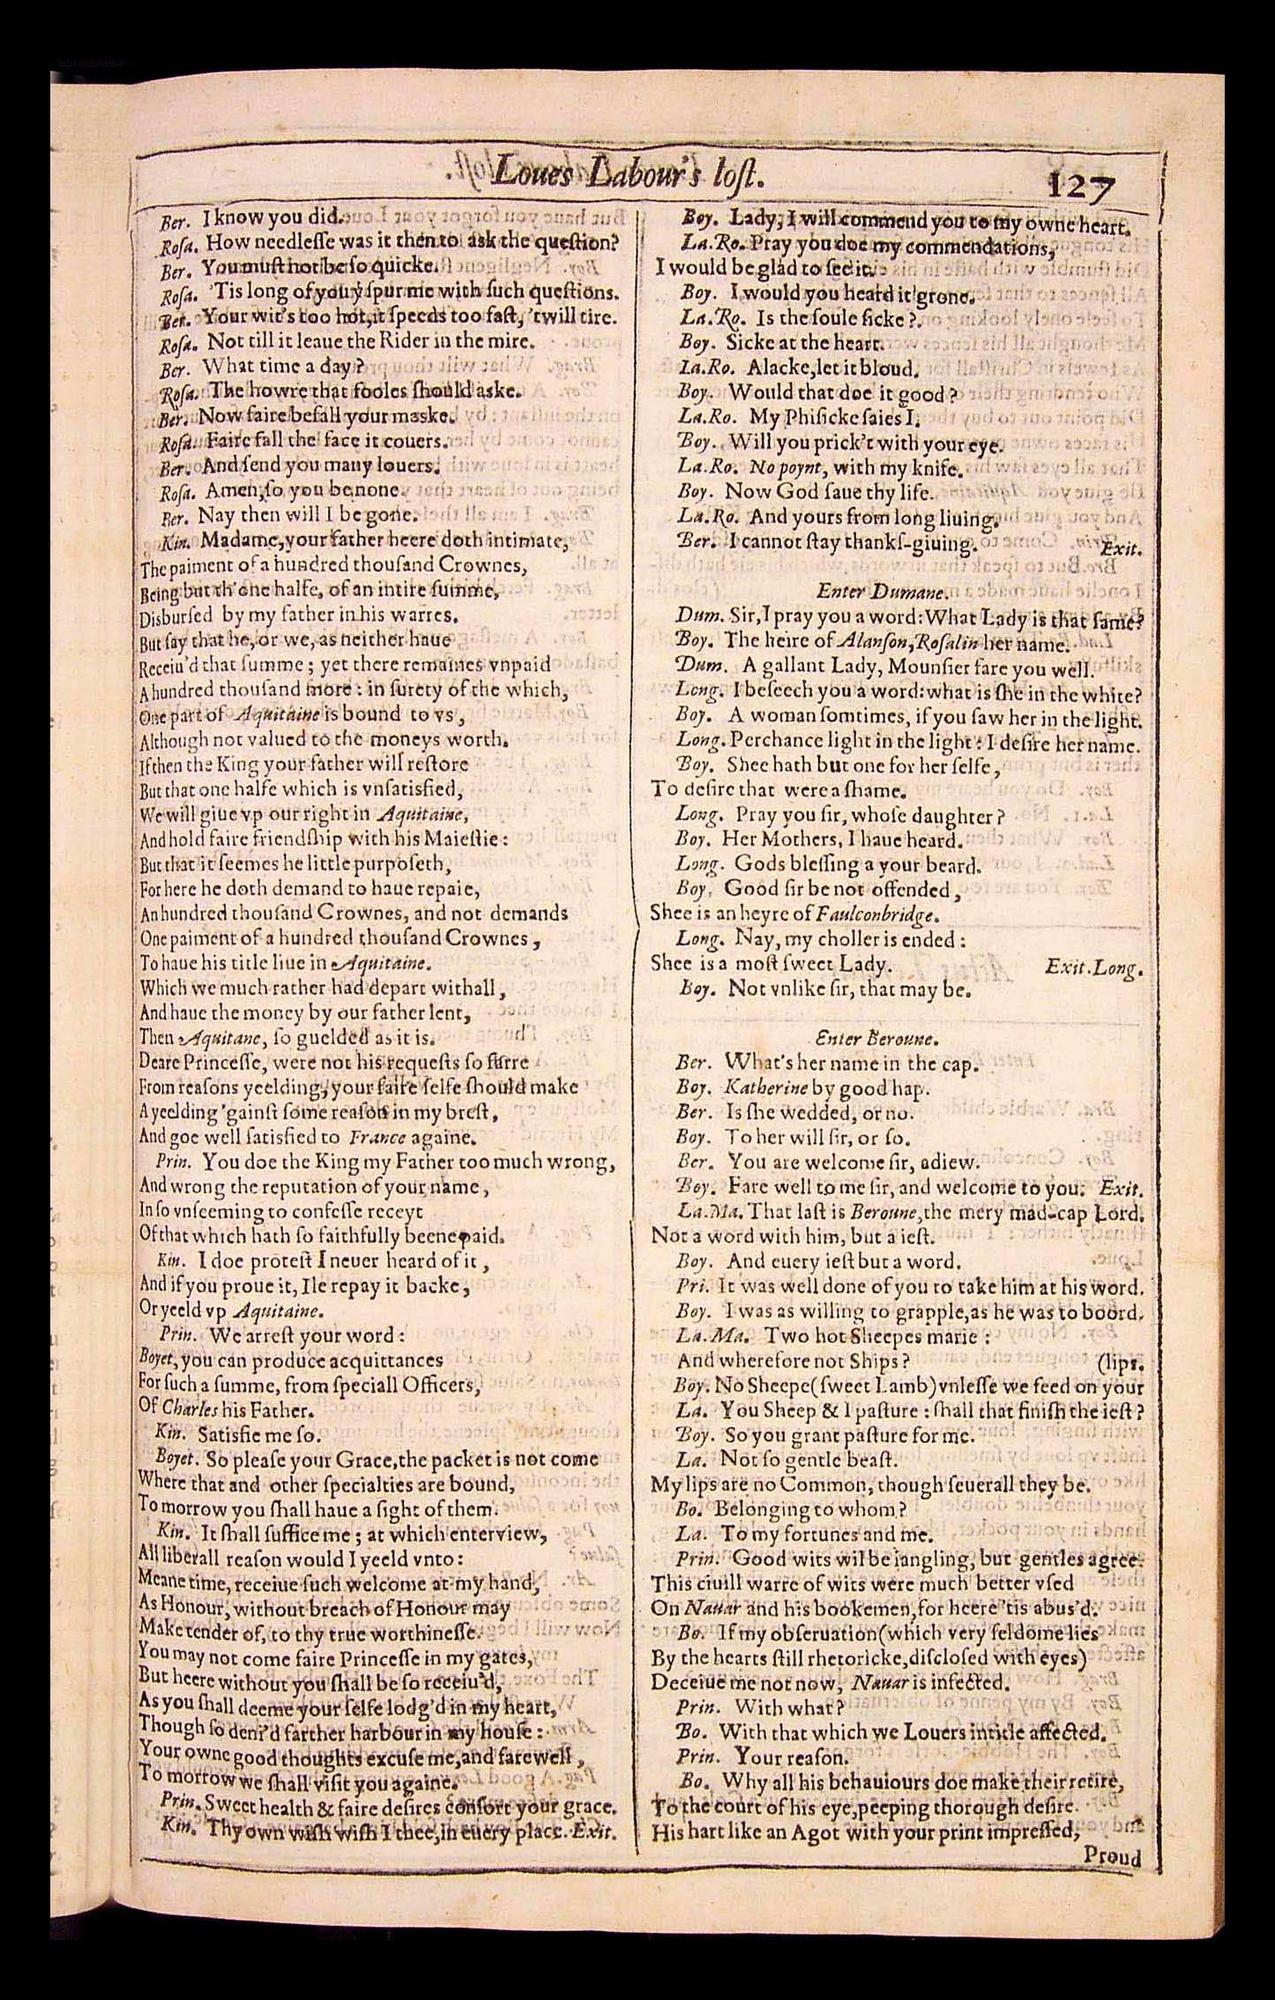 Loues Labour's lost.
127
Ber. I know you did.
Rosa. How needlesse was it then to ask the question?
Ber. You must not be so quicke.
Rosa. 'Tis long of you y spur me with such questions.
Ber. Your wit's too hot, it speeds too fast, 'twill tire.
Rosa. Not till it leaue the Rider in the mire.
Ber. What time a day?
Rosa. The howre that fooles should aske.
Ber. Now faire befall your maske.
Rosa. Faire fall the face it couers.
Ber. And send you many louers.
Rosa. Amen, so you be none.
Ber. Nay then will I be gone.
Kin. Madame, your father heere doth intimate,
The paiment of a hundred thousand Crownes,
Being but th'one halfe, of an intire summe,
Disbursed by my father in his warres.
But say that he, or we, as neither haue
Receiu'd that summe; yet there remaines vnpaid
A hundred thousand more: in surety of the which,
One part of Aquitaine is bound to vs,
Although not valued to the moneys worth.
If then the King your father will restore
But that one halfe which is vnsatisfied,
We will giue vp our right in Aquitaine,
And hold faire friendship with his Maiestie:
But that it seemes he little purposeth,
For here he doth demand to haue repaie,
An hundred thousand Crownes, and not demands
One paiment of a hundred thousand Crownes,
To haue his title liue in Aquitaine.
Which we much rather had depart withall,
And haue the money by our father lent,
Then Aquitane, so guelded as it is.
Deare Princesse, were not his requests so farre
From reasons yeelding, your faire selfe should make
A yeelding 'gainst some reason in my brest,
And goe well satisfied to France againe.
Prin. You doe the King my Father too much wrong,
And wrong the reputation of your name,
In so vnseeming to confesse receyt
Of that which hath so faithfully beene paid.
Kin. I doe protest I neuer heard of it,
And if you proue it, Ile repay it backe,
Or yeeld vp Aquitaine.
Prin. We arrest your word:
Boyet, you can produce acquittances
For such a summe, from speciall Officers,
Of Charles his Father.
Kin. Satisfie me so.
Boyet. So please your Grace, the packet is not come
Where that and other specialties are bound,
To morrow you shall haue a sight of them.
Kin. It shall suffice me; at which enterview,
All liberall reason would I yeeld vnto:
Meane time, receiue such welcome at my hand,
As Honour, without breach of Honour may
Make tender of, to thy true worthinesse.
You may not come faire Princesse in my gates,
But heere without you shall be so receiu'd,
As you shall deeme your selfe lodg'd in my heart,
Though so deni'd farther harbour in my house:
Your owne good thoughts excuse me, and farewell,
To morrow we shall visit you againe.
Prin. Sweet health & faire desires consort your grace.
Kin. Thy own wish wish I thee, in euery place. Exit.
Boy. Lady, I will commend you to my owne heart.
La.Ro. Pray you doe my commendations,
I would be glad to see it.
Boy. I would you heard it grone.
La.Ro. Is the soule sicke?
Boy. Sicke at the heart.
La.Ro. Alacke, let it bloud.
Boy. Would that doe it good?
La.Ro. My Phisicke saies I.
Boy. Will you prick't with your eye.
La.Ro. No poynt, with my knife.
Boy. Now God saue thy life.
La.Ro. And yours from long liuing.
Ber. I cannot stay thanks-giuing. Exit.
Enter Dumane.
Dum. Sir, I pray you a word: What Lady is that same?
Boy. The heire of Alanson, Rosalin her name.
Dum. A gallant Lady, Mounsier fare you well.
Long. I beseech you a word: what is she in the white?
Boy. A woman somtimes, if you saw her in the light.
Long. Perchance light in the light: I desire her name.
Boy. Shee hath but one for her selfe,
To desire that were a shame.
Long. Pray you sir, whose daughter?
Boy. Her Mothers, I haue heard.
Long. Gods blessing a your beard.
Boy. Good sir be not offended,
Shee is an heyre of Faulconbridge.
Long. Nay, my choller is ended:
Shee is a most sweet Lady. Exit. Long.
Boy. Not vnlike sir, that may be.
Enter Beroune.
Ber. What's her name in the cap.
Boy. Katherine by good hap.
Ber. Is she wedded, or no.
Boy. To her will sir, or so.
Ber. You are welcome sir, adiew.
Boy. Fare well to me sir, and welcome to you. Exit.
La.Ma. That last is Beroune, the mery mad-cap Lord.
Not a word with him, but a iest.
Boy. And euery iest but a word.
Pri. It was well done of you to take him at his word.
Boy. I was as willing to grapple, as he was to boord.
La.Ma. Two hot Sheepes marie:
And wherefore not Ships? (lips.
Boy. No Sheepe (sweet Lamb) vnlesse we feed on your
La. You Sheep & I pasture: shall that finish the iest?
Boy. So you grant pasture for me.
La. Not so gentle beast.
My lips are no Common, though seuerall they be.
Bo. Belonging to whom?
La. To my fortunes and me.
Prin. Good wits wil be iangling, but gentles agree.
This ciuill warre of wits were much better vsed
On Nauar and his bookemen, for heere 'tis abus'd.
Bo. If my obseruation (which very seldome lies
By the hearts still rhetoricke, disclosed with eyes)
Deceiue me not now, Nauar is infected.
Prin. With what?
Bo. With that which we Louers intitle affected.
Prin. Your reason.
Bo. Why all his behauiours doe make their retire,
To the court of his eye, peeping thorough desire.
His hart like an Agot with your print impressed,
Proud